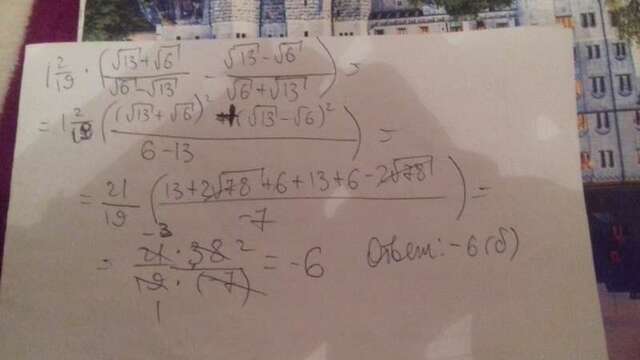 1 2/19 · ( (√13+√6)/(√6-√13) - (√13-√6)/(√6+√13) ) =
= 1 2/19 ( ((√13+√6)² + (√13-√6)²)/(6-13) ) =
= 21/19 ( (13+2√78+6+13+6-2√78)/(-7) ) =
= (21 · 38²)/(19 · (-7)) = -6 Ответ: -6 (б)